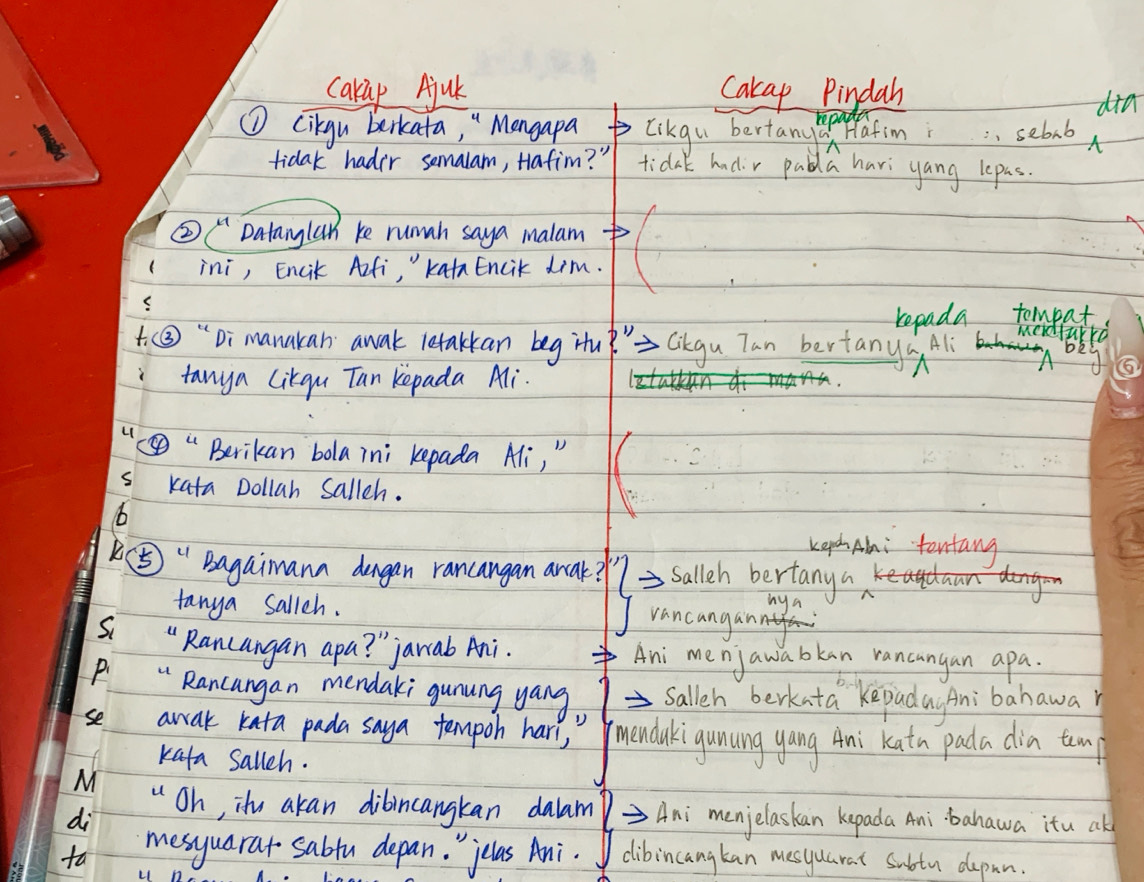 Cakap Ajuk
Cakap Pindah
① Cikgu berkata, "Mengapa
tidak hadir semalam, Hafim?"
→ Cikgu bertanya kepada Hafim sebab dia
tidak hadir pada hari yang lepas.
② "Datanglah ke rumah saya malam →
ini, Encik Azfi," kata Encik Lim.
③ "Di manakah awak letakkan beg itu?"
tanya Cikgu Tan kepada Ali.
kepada tempat
→ Cikgu Tan bertanya Ali bahawa beg
letakkan di mana.
④ "Berikan bola ini kepada Ali,"
kata Dollah Salleh.
⑤ "Bagaimana dengan rancangan awak?"
tanya Salleh.
tentang
→ Salleh bertanya keadaan dengan
nya
"Rancangan apa?" jawab Ani.
→ Ani menjawabkan rancangan apa.
"Rancangan mendaki gunung yang
awak kata pada saya tempoh hari,"
kata Salleh.
→ Salleh berkata kepada Ani bahawa
mendaki gunung yang Ani kata pada dia
"Oh, itu akan dibincangkan dalam
mesyuarat sabtu depan." jelas Ani.
→ Ani menjelaskan kepada Ani bahawa itu
dibincangkan mesyuarat sabtu depan.